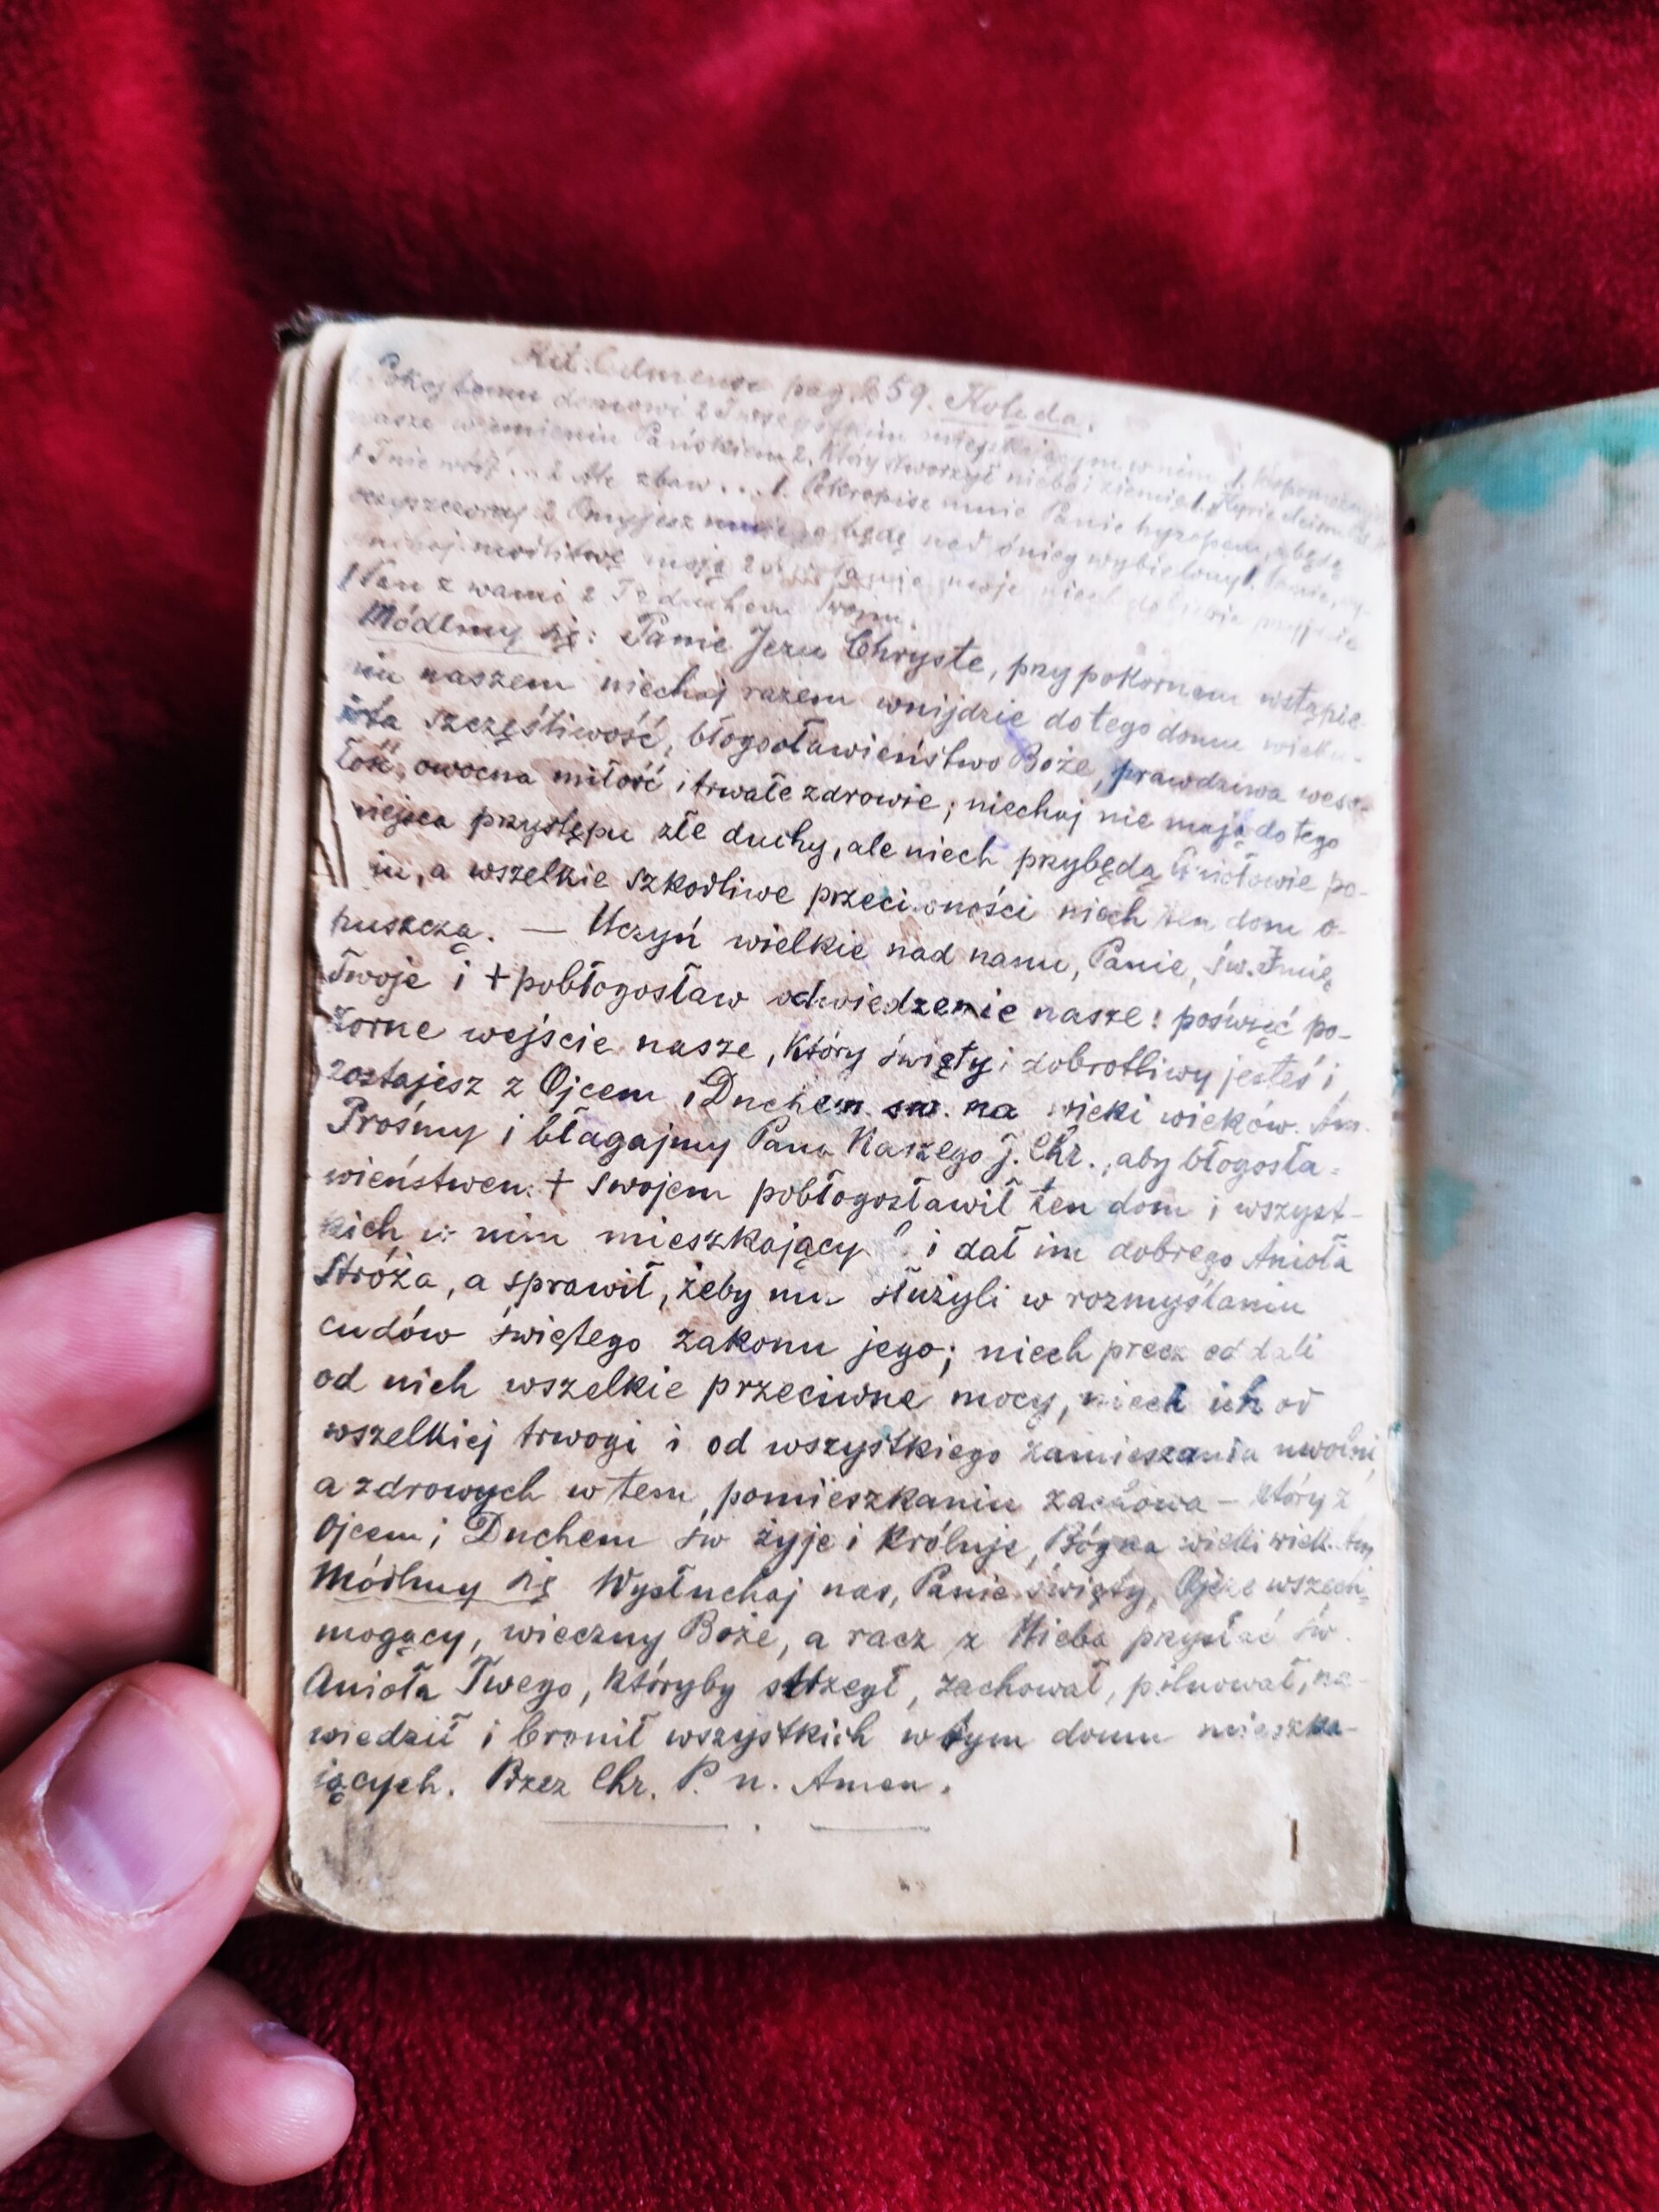 Rit. Culmense pag. 259. Kolęda.
Pokój temu domowi 2 I wszystkim mieszkającym w nim. 1. Wspomożenie
nasze w imieniu Pańskiem 2. Który stworzył niebo i ziemię 1. Kyrie eleison
1 I nie wódź ... 2 Ale zbaw ... 1. Pokropisz mnie Panie hyzopem, a będę
oczyszczony 2 Omyjesz mnie, a będę nad śnieg wybielony 1. Panie, wy-
słuchaj modlitwę moją 2 a wołanie moje niech do Ciebie przyjdzie
1 Pan z wami 2 I z duchem Twoim.
Módlmy się: Panie Jezu Chryste, przy pokornem wstąpie-
niu naszem niechaj razem wnijdzie do tego domu wieku-
ista szczęśliwość, błogosławieństwo Boże, prawdziwa weso-
łość, owocna miłość i trwałe zdrowie; niechaj nie mają do tego
miejsca przystępu złe duchy, ale niech przybędą Aniołowie po-
, a wszelkie szkodliwe przeciwności niech ten dom o-
puszczą. — Uczyń wielkie nad nami, Panie, św. Imię
Twoje i + pobłogosław odwiedzenie nasze: poświęć po-
korne wejście nasze, który święty i dobrotliwy jesteś i
zostajesz z Ojcem i Duchem św. na wieki wieków. Am.
Prośmy i błagajmy Pana Naszego J. Chr., aby błogosła-
wieństwem + swojem pobłogosławił ten dom i wszyst-
kich w nim mieszkający i dał im dobrego Anioła
Stróża, a sprawił, żeby mu służyli w rozmyślaniu
cudów świętego zakonu jego; niech precz oddali
od nich wszelkie przeciwne mocy, niech ich od
wszelkiej trwogi i od wszystkiego zamieszania uwolni,
a zdrowych w tem pomieszkaniu zachowa – który z
Ojcem i Duchem św żyje i króluje, Bóg na wieki wiek. Am.
Módlmy się Wysłuchaj nas, Panie święty, Ojcze wszech-
mogący, wieczny Boże, a racz z Nieba przysłać św.
Anioła Twego, któryby strzegł, zachował, pilnował, na-
wiedził i bronił wszystkich w tym domu mieszka-
jących. Przez Chr. P. n. Amen.